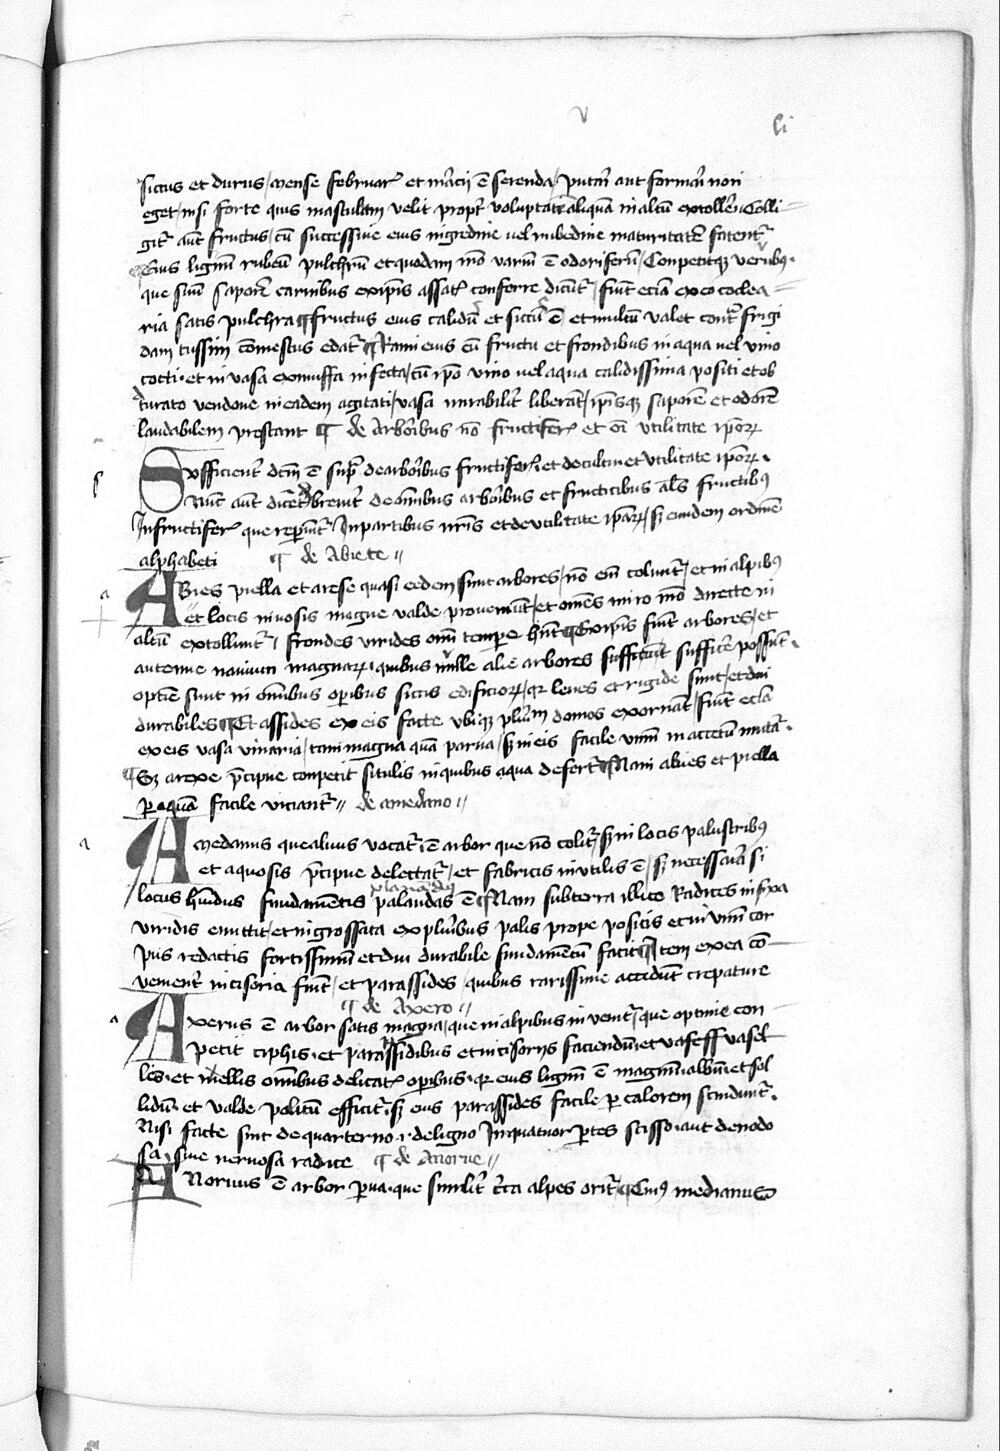 v
li
siccus et durus / mense februar᷒ et m̄cij ē serenda / putar̄i aut formar̄i non
eget / nisi forte quis masculam velit propt̄ voluptatē aliquā in altū extollere / Colli=
git᷒ aut̄ fructus / cū successiue eius nigredine uel rubedine maturitatē fatent᷒
¶ Eius lignū rubeū pulchrū et quodam mō variū ē odoriferū / Conpetitqꝫ verubꝫ.
que suū saporē carnibus ex ip̄is assat᷒ conferre dicūt᷒ / fiūt eciā ex eo coclea=
ria satis pulchra ¶ fructus eius calidus et siccus ē et multū valet cont᷒ frigi
dam tussim com̄estus edat᷒ ¶ Rami eius cū fructu et frondibus in aqua uel vino
cocti · et in vasa ex muffa infecta / cū ip̄o vino uel aqua calidissima positi et ob
turato vendone in eadem agitati / vasa mirabilit̄ liberāt / ip̄isqꝫ saporē et odorē
laudabilem prestant ¶ de Arboribus nō fructifer᷒ et ōi utilitate ip̄oꝝ
Sufficient̄ dc̄m ē sup̄ de arboribus fructifer᷒ et de cultu et utilitate ip̄oꝝ.
Nūc aut̄ dicēd̄ breuit̄ de om̄ibus arboribus et fructicibus al̄s fructibꝫ
Infructifer᷒ que reperiūt᷒ In partibus nr̄is et de utilitate ip̄aꝝ / sꝫ eundem ordinē
alphabeti ¶ de Abiete //
a
Abies piella et arese quasi eedem sunt arbores / nō eī colunt᷒ / et in alpibꝫ
et locis niuosis magne valde proueniūt / et om̄es miro mō directe in
altū extollunt᷒ / frondes virides om̄i tempore hn̄t ¶ Ex ip̄is fiūt arbores / et
antenne nauium magnaꝝ · quibus nulle alie arbores sufficiūt sufficere possūt.
optīe sunt in om̄ibus operibus siccis edificioꝝ / qꝛ leues et rigide sunt / et diu
durabiles ¶ Et assides ex eis facte ubiqꝫ plurimum domos exornāt / fiūt eciā
ex eis vasa vinaria / tam magna quā parua / sꝫ in eis facile vinū in acetū mutat᷒.
¶ Sꝫ arexe p̄cipue conpetit situlis in quibus aqua defert᷒ ¶ Nam abies et piella
ꝑ aquā facile viciant᷒ // de amedano //
a
Amedanus que alnus vocat᷒ ē arbor que nō colit᷒ / sꝫ in locis palustribus
et aquosis p̄cipue delectat᷒ / et fabricis inutilis ē / sꝫ necessaria si
locus humidus fundamentis palandus ē ¶ Nam subterra illico Radices infixa
viridis emittit / et ingrossata ex pluribus palis prope positis et in vnū cor
pus redactis fortissimū et diu durabile fundamentū facit ¶ Item ex ea cō=
uenient̄ incisoria fiūt / et parassides / quibus rarissime accidūt crepature
¶ de Axero //
a
Axerus ē arbor satis magna / que in alpibus inuenit᷒ / que optime con
petit ciphis · et parassidibus et incisorijs faciendū · et vaseff vasel
les · et mellis om̄ibus delicat᷒ operibus · qꝛ eius lignū ē magnū · albū · et sol
lidū · et valde politū efficit᷒ · sꝫ eius parassides facile ꝑ calorem scindunt᷒.
Nisi facte sint de quarterno · i · de ligno In quatuor ꝑtes scisso · aut de nodo
sa · siue neruosa radice ¶ de Anorne //
Anornus ē arbor ꝑua · que similit̄ cͥca alpes orit᷒ ¶ Cuiꝫ medianus